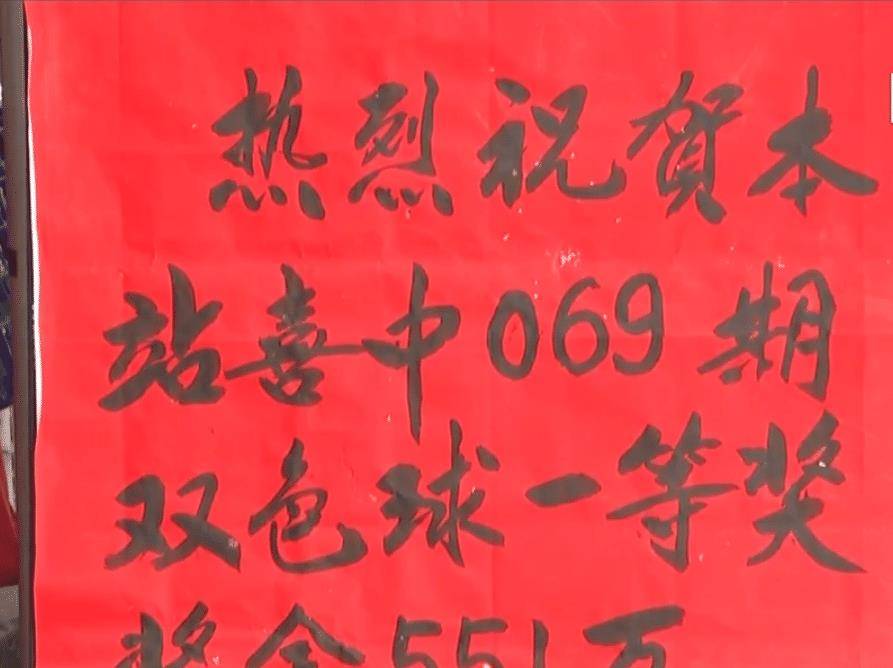 热烈祝贺本
站喜中069期
双色球一等奖
奖金551万